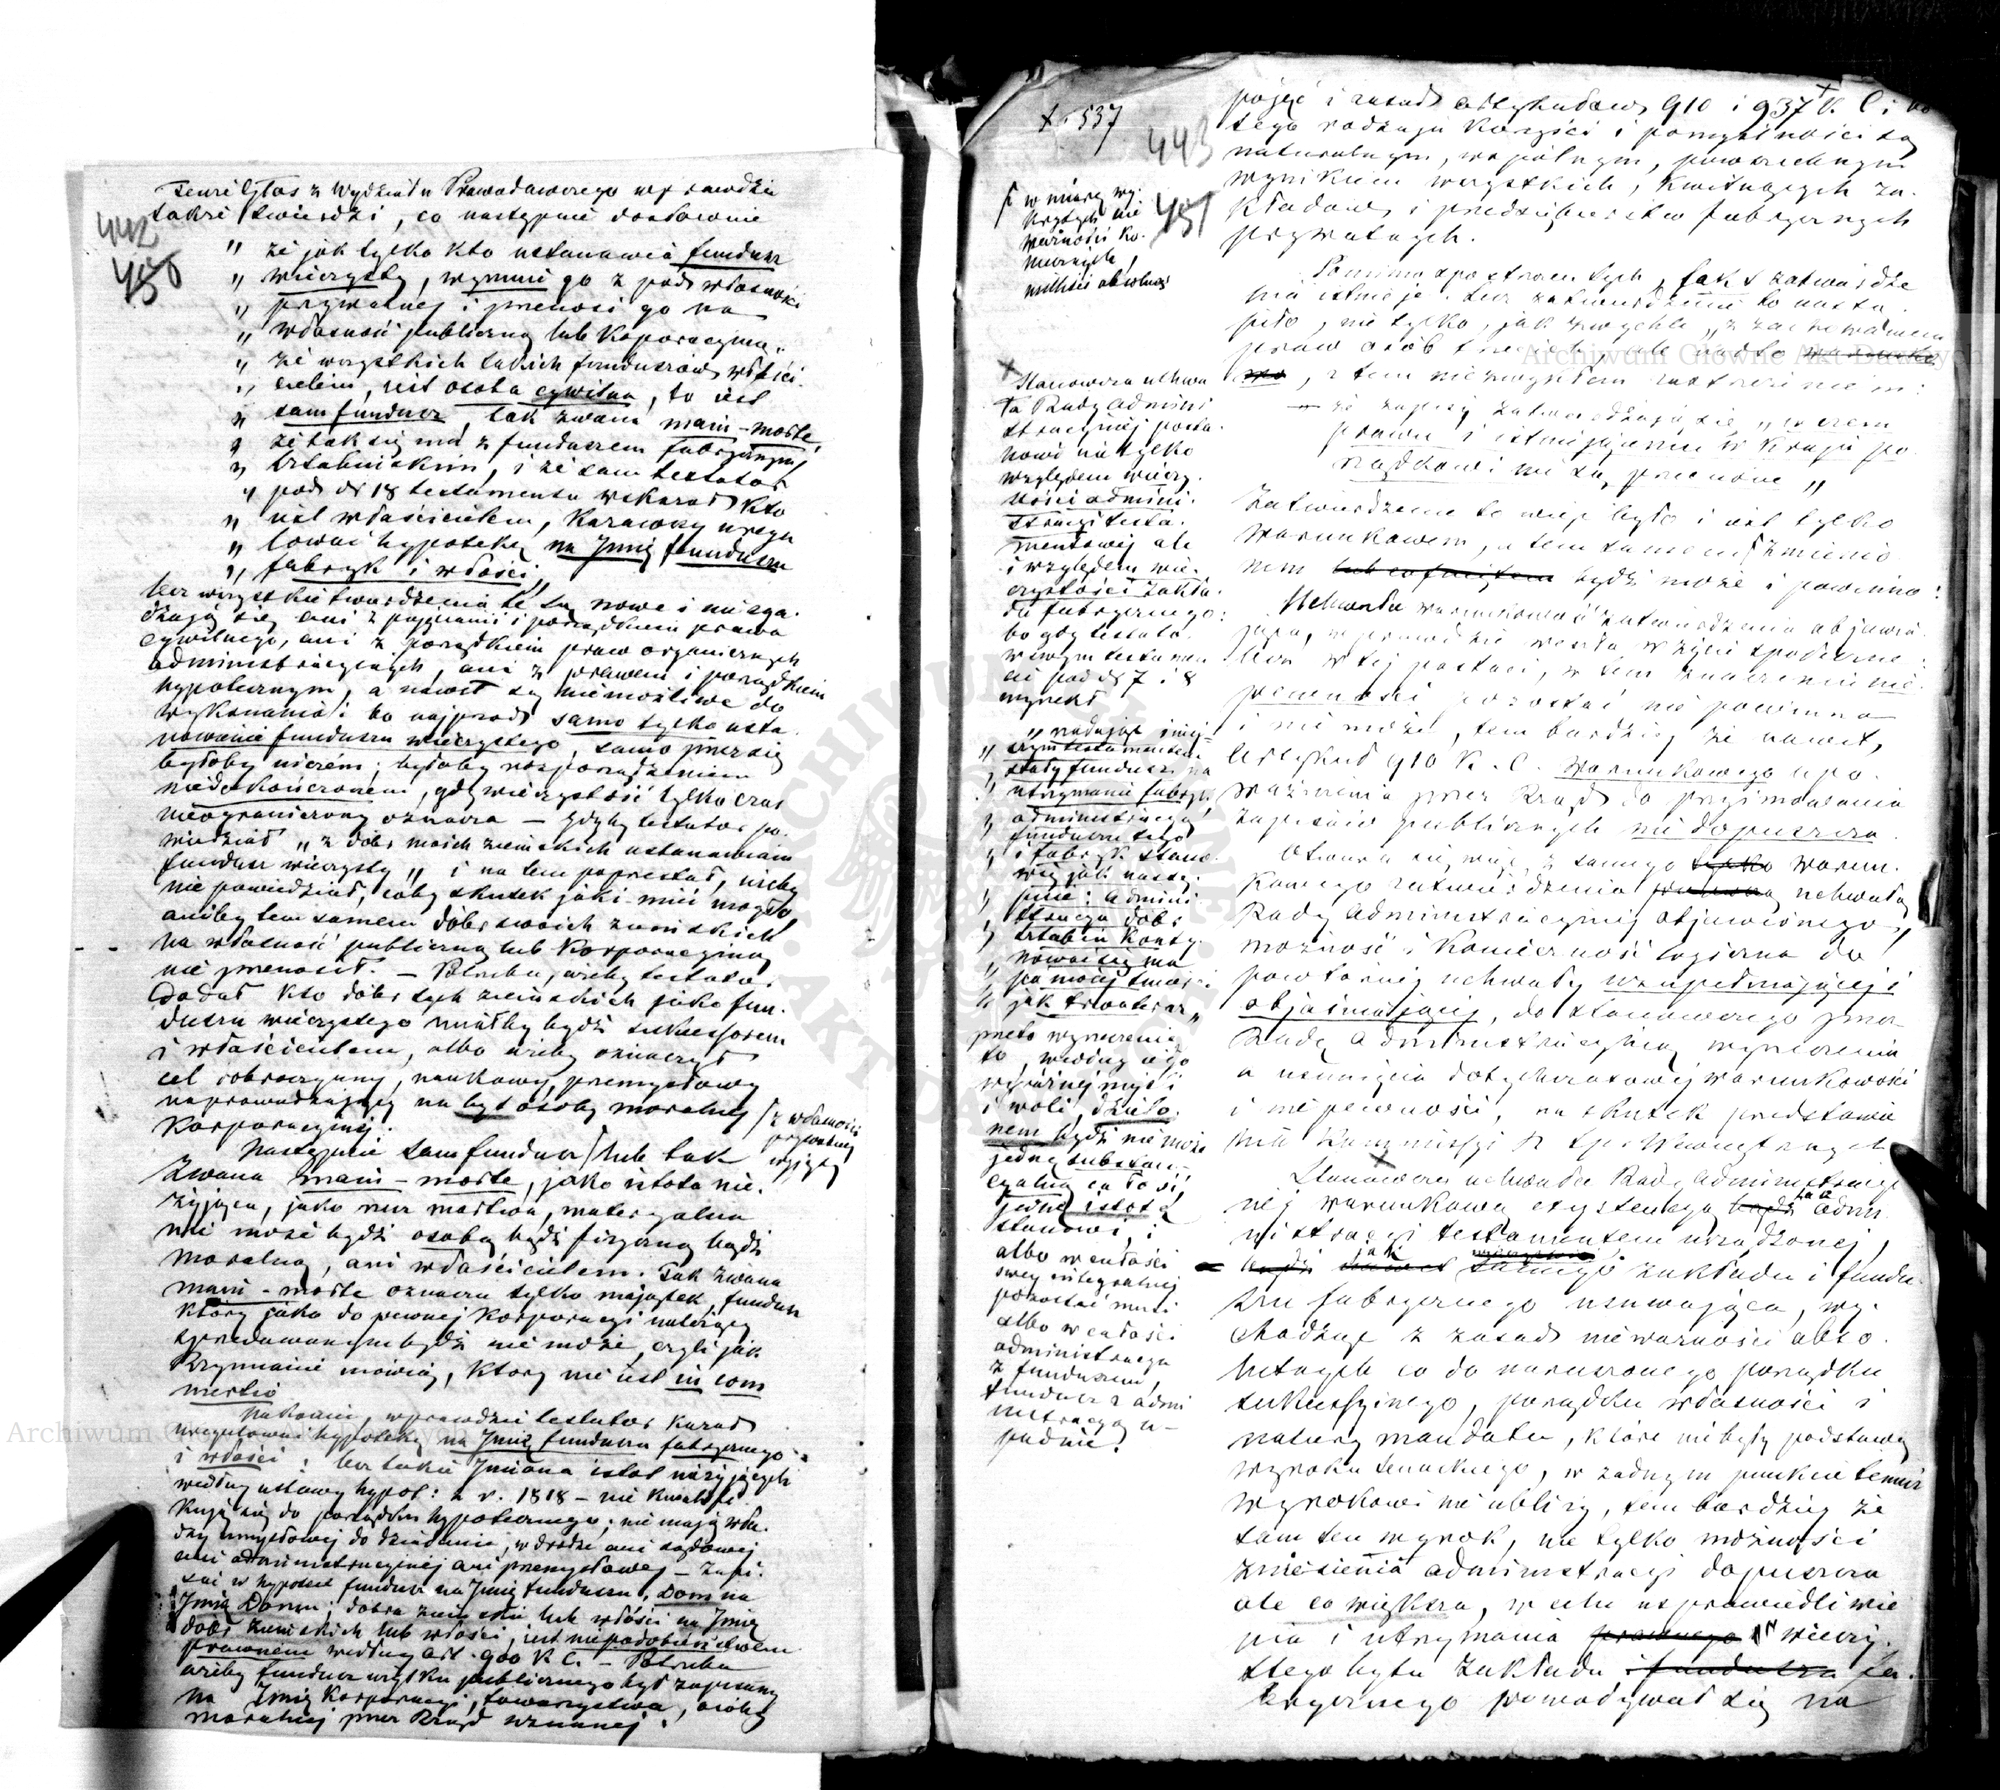 442
450
Tenże Głos z Wydziału Prawodawczego wprawdzie
także twierdzi, co następuje dosłownie
„ że jak tylko kto ustanawia fundusz
„ wieczysty, wyjmuje go z pod własności
„ prywatnej i przenosi go na
„ własność publiczną lub Korporacyjną,
„ że wszystkich takich funduszów właści
„ cielem, jest osoba cywilna, to jest
„ sam fundusz, tak zwana main-morte,
„ że tak się ma z funduszem fabrycznym
„ Sztabińskim, i że sam testator
„ pod № 18 testamentu wskazał kto
„ jest właścicielem, kazawszy uregu
„ lować hypotekę na Imię funduszu
„ fabryk i włości „
lecz wszystkie twierdzenia te są nowe i nie zga-
dzają się ani z pojęciami i porządkiem prawa
cywilnego, ani z porządkiem praw organicznych
administracyjnych, ani z prawem i porządkiem
hypotecznym, a nawet są niemożliwe do
wykonania: bo najprzód samo tylko usta
nowienie funduszu wieczystego, samo przez się
byłoby niczém; byłoby rozporządzeniem
niedokończonem, gdyż wieczystość tylko czas
nieograniczony oznacza — Gdyby testator po-
wiedział „ z dóbr moich ziemskich ustanawiam
fundusz wieczysty „ i na tem poprzestał, niby
nie powiedział, coby skutek jaki mieć mogło,
aniby tem samem dóbr swoich ziemskich
na własność publiczną lub Korporacyjną
nie przenosił. — Potrzeba, ażeby testator
dodał kto dóbr tych ziemskich jako fun-
duszu wieczystego miałby być sukcessorem
i właścicielem, albo ażeby oznaczył
cel dobroczynny, naukowy, przemysłowy
naprowadzający na byt osoby moralnej
Korporacyjnej.
z własności
prywatnej
wyjęty
Następnie sam fundusz lub tak
zwana main-morte, jako istota nie-
żyjąca, jako rzecz martwa, materyalna
nie może być osobą bądź fizyczną bądź
moralną, ani właścicielem. Tak zwana
main-morte oznacza tylko majątek, fundusz
który jako do pewnej Korporacyi należący
sprzedawanym być nie może, czyli jak
Rzymianie mówią, który nie jest in com
mertio
Nakoniec, wprawdzie testator kazał
uregulować hypotekę na Imię funduszu fabrycznego
i włości; lecz takie Imiona istot nieżyjących
według ustawy hypot: z r. 1818 — nie kwalifi
kują się do porządku hypotecznego; nie mają wła-
dzy umysłowej do działania, w drodze ani sądowej
ani administracyjnej ani przemysłowej — Zapi-
sać w hypotece fundusz na Imię funduszu, Dom na
Imię Domu; dobra ziemskie lub włości na Imię
dóbr ziemskich lub włości, jest niepodobieństwem
prawnem według art. 900 K C. — Potrzeba
ażeby fundusz użytku publicznego był zapisany
na Imię Korporacyi, towarzystwa, osoby
moralnej przez Rząd uznanej.
537
443
451
w miarę wy-
krytych nie
ważności ko-
niecznych,
nullités absolues
Stanowcza uchwa
ła Rady Admini
stracyjnej posta-
nowi nie tylko
względem wieczy-
stości admini-
stracyi testa-
mentowej ale
i względem wie-
czystości zakła-
du fabrycznego:
bo gdy testator
w swym testamen
cie pod № 7 i 8
wyrzekł
„ nadając niniej-
„ szym testamentem
„ stały fundusz na
„ utrzymanie fabryk
„ administracyą
„ funduszu tego
„ i fabryk stano-
„ wię jak nastę-
„ puje: Admini
„ stracya dóbr
„ Sztabin konty-
„ nować się ma
„ po mojej śmierci
„ jak trwa teraz „
przeto wyrzeczenie
to, według jego
wyraźnej myśli
i woli, dzielo-
nem być nie może
jedną substan-
cyalną całość,
jedną istotę
stanowi; i
albo w całości
swej integralnej
pozostać musi
albo w całości
administracya
z funduszem,
fundusz z admi
nistracyą u-
padnie.
pojęć i zasad artykułów 910 i 937 K. C. i
tego rodzaju korzyści i pomyślności są
naturalnym, wspólnym, powszechnym
wynikiem wszystkich, kwitnących za-
kładów i przedsiębierstw fabrycznych
prywatnych.
Pomimo spostrzeń tych, fakt zatwierdze
nia istnieje. Lecz zatwierdzenie to nastą-
piło, nie tylko, jak zwykle „ z zachowaniem
praw osób trzecich „ ale nadto
, z tem niezwykłem zastrzeżeniem:
— że zapisy zatwierdzają się „ o czem
prawu i istniejącemu w Kraju po-
rządkowi nie są przeciwne „
Zatwierdzenie to więc było i jest tylko
warunkowem, a tem samem zmienio
nem lub cofniętem być może i powinno:
Uchwała warunkowość zatwierdzenia objawia
jąca, wprawdzie weszła w życie społeczne:
lecz w tej postaci, w tem znaczeniu nie-
pewności pozostać nie powinna
i nie może, tem bardziej że nawet,
artykuł 910 K. C. warunkowego upo-
ważnienia przez Rząd do przyjmowania
zapisów publicznych nie dopuszcza.
Otwiera się więc z samego tylko warun-
kowego zatwierdzenia uchwałą
Rady Administracyjnej objawionego,
możność i konieczność logiczna do
powtórnej uchwały uzupełniającej i
objaśniającej, do stanowczego przez
Radę Administracyjną wyrzeczenia
a usunięcia dotychczasowej warunkowości
i niepewności, na skutek przedstawie
nia Kommissyi R. Spr. Wewnętrznych
Stanowcza uchwała Rady Administracyj
nej warunkową exystencyą bądź admi
nistracyi testamentem urządzonej,
bądź samego zakładu i fundu-
szu fabrycznego usuwająca, wy-
chodząc z zasad nieważności abso-
lutnych co do naruszonego porządku
sukcessyjnego, porządku własności i
natury mandatu, które nie były podstawą
wyroku senackiego, w żadnym punkcie temuż
wyrokowi nie ubliży, tem bardziej że
sam ten wyrok, nie tylko możności
zniesienia administracyi dopuszcza
ale co większa, w celu usprawiedliwie
nia i utrzymania prawnego wieczy-
stego bytu zakładu i funduszu fa-
brycznego powoływał się na
Archiwum Główne Akt Dawnych
Archiwum Główne Akt Dawnych
ARCHIWUM GŁÓWNE AKT DAWNYCH